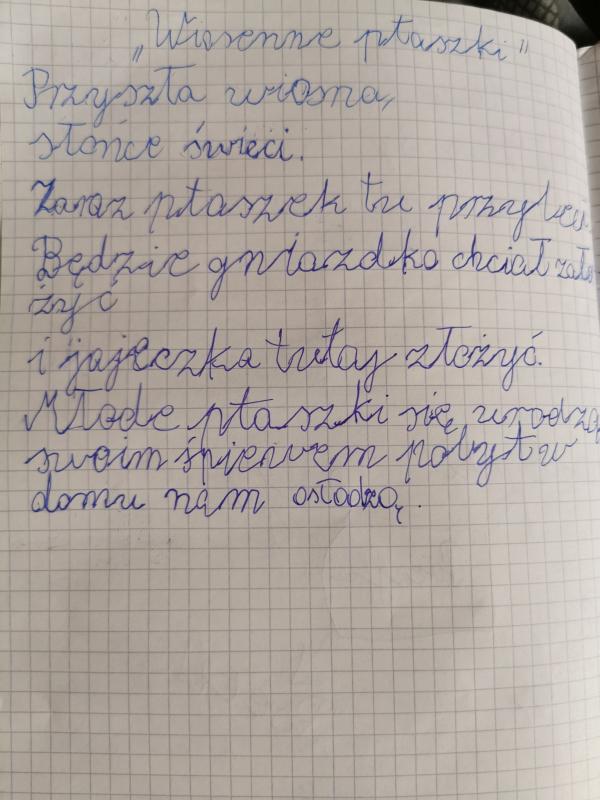 „Wiosenne ptaszki"
Przyszła wiosna,
słońce świeci.
Zaraz ptaszek tu przyleci.
Będzie gniazdko chciał zało
żyć
i jajeczka tutaj złożyć.
Młode ptaszki się urodzą,
swoim śpiewem pobyt w
domu nam osłodzą.